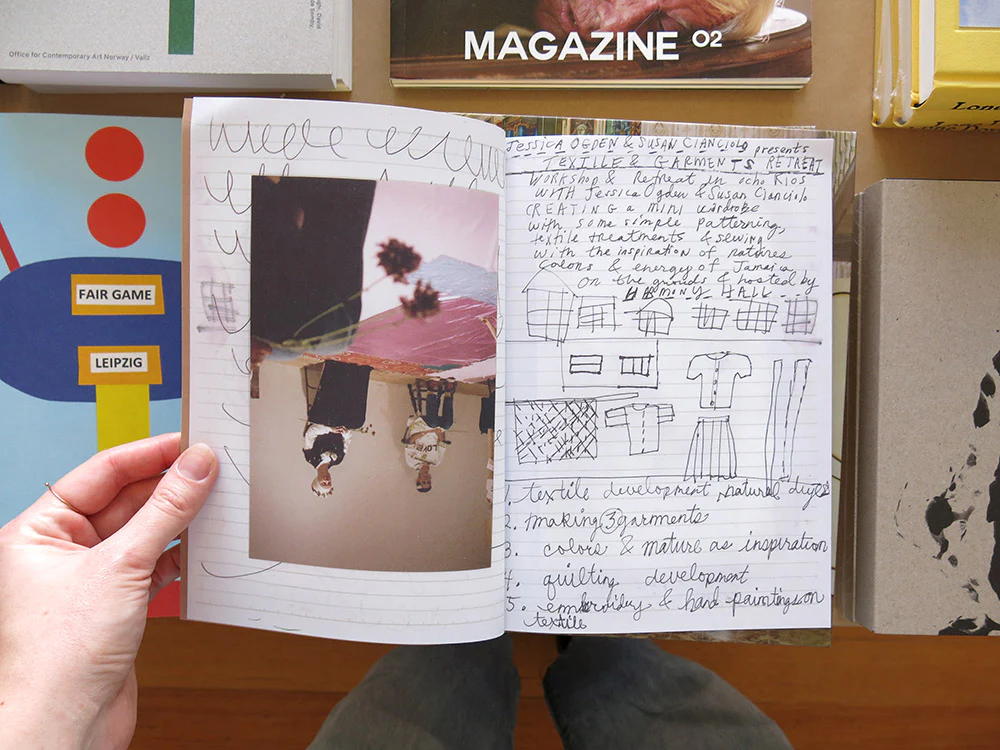 Office for Contemporary Art Norway / Valiz
MAGAZINE 02
FAIR GAME
LEIPZIG
Jessica Ogden & Susan Cianciolo presents
TEXTILE & GARMENTS RETREAT
Workshop & Retreat in Ocho Rios
WITH Jessica Ogden & Susan Cianciolo
CREATING a mini wardrobe
with some simple patterning,
textile treatments & sewing
with the inspiration of natures
colors & energy of Jamaica
on the grounds & hosted by
HARMONY HALL
LOVE
1. textile development, natural dyes
2. making 3 garments
3. colors & nature as inspiration
4. quilting development
5. embroidery & hand paintings on
textile